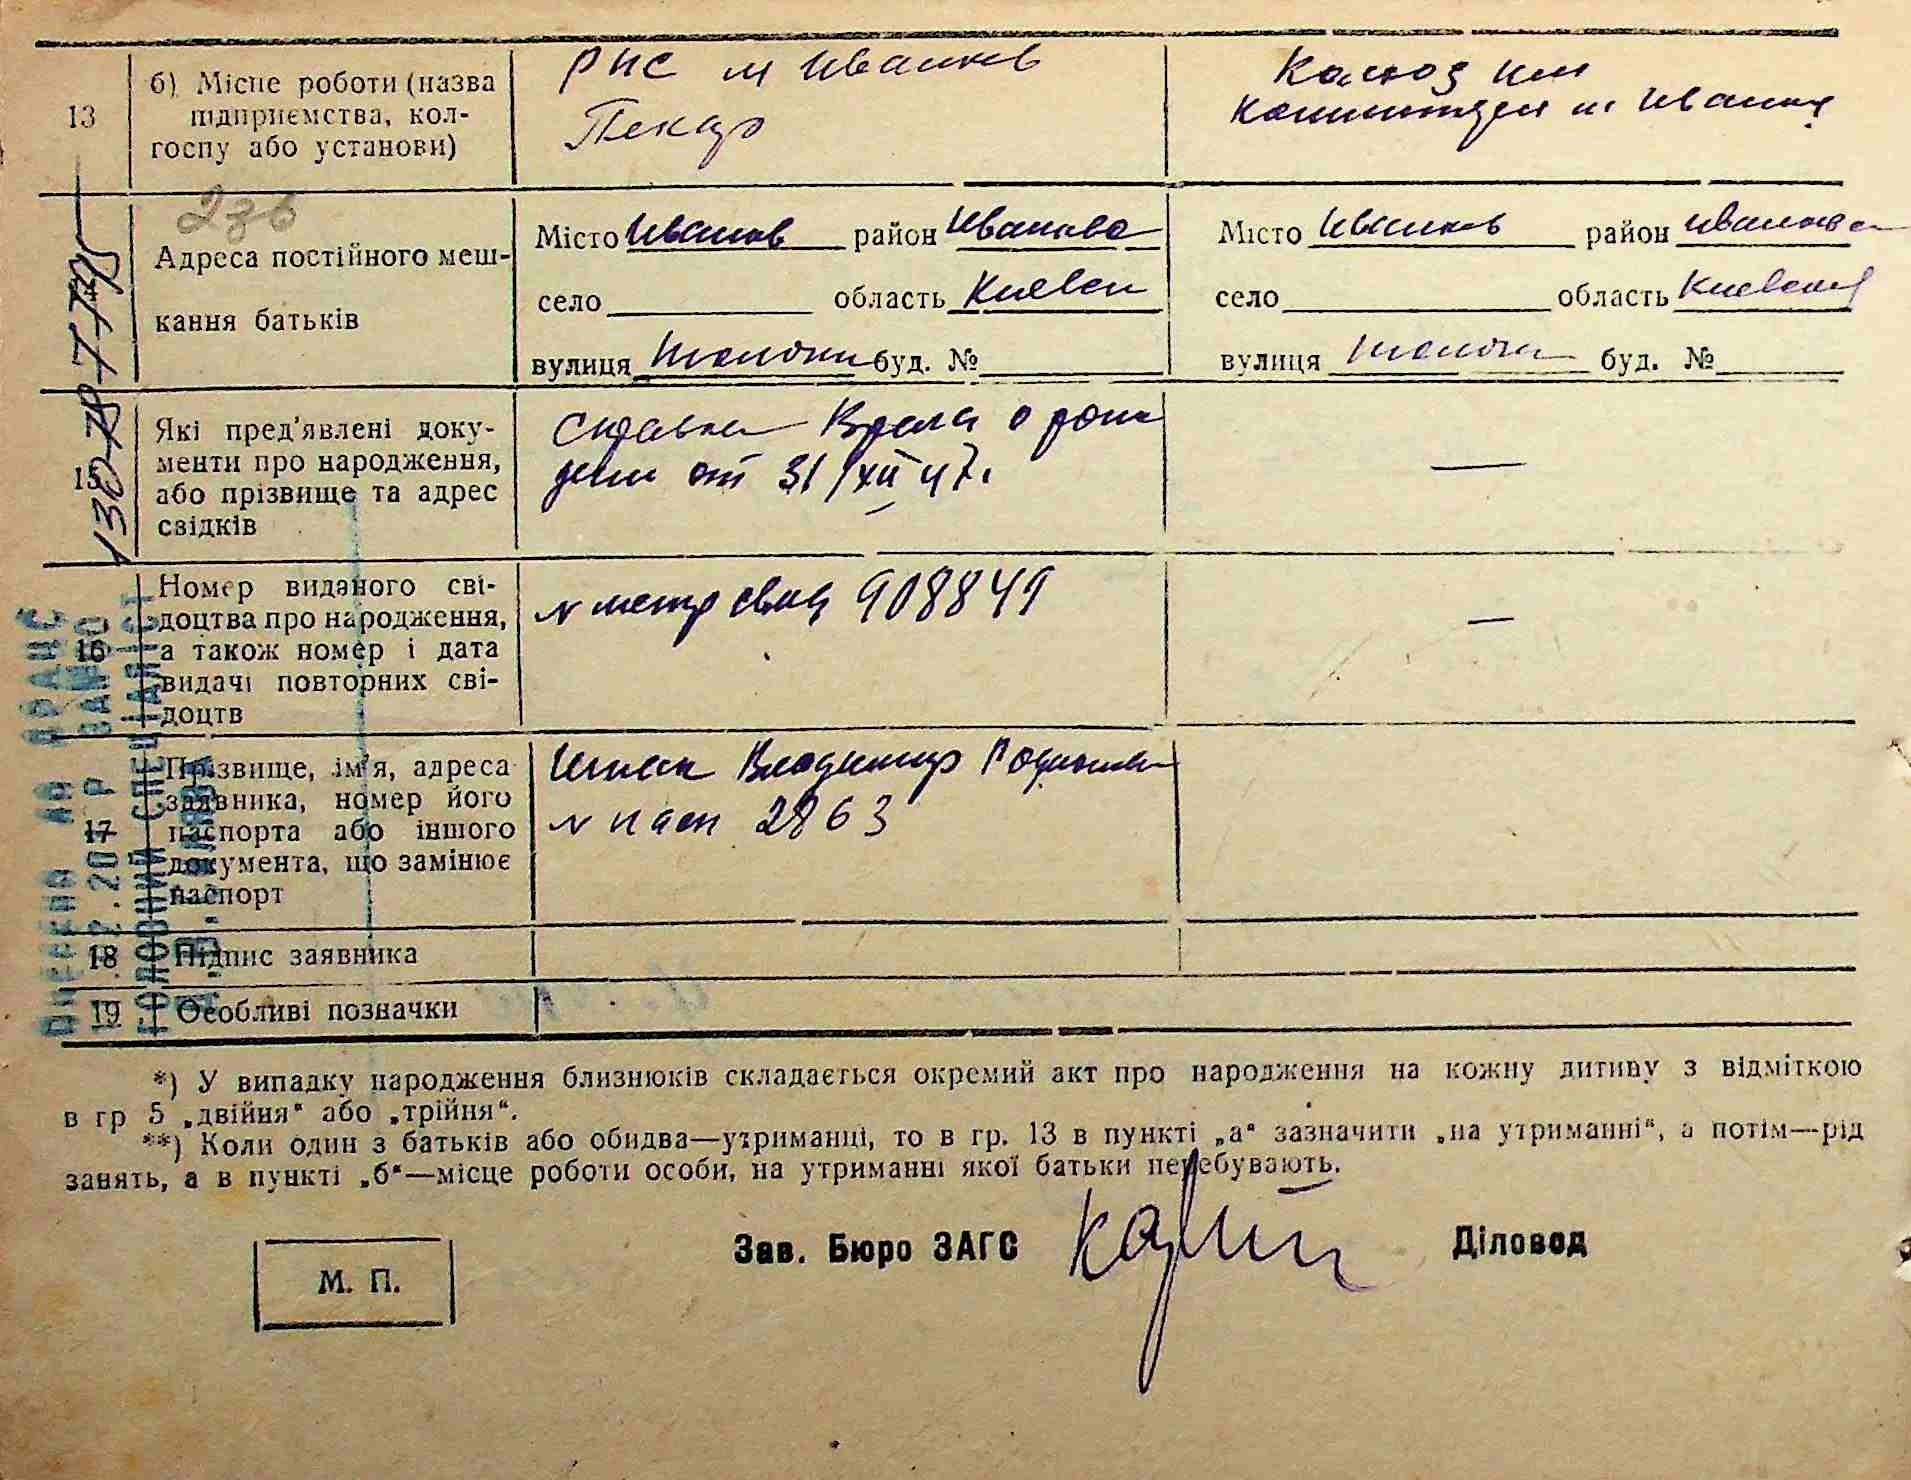 13
б) Місце роботи (назва
підприємства, кол-
госпу або установи)
РПС м Иванков
Пекар
Колхоз им
Коминтерн м Иванков
236
Адреса постійного меш-
кання батьків
Місто Иванков район Иванков
село область Киевск
вулиця буд. №
Місто Иванков район Иванков
село область Киевск
вулиця буд. №
15
Які пред'явлені доку-
менти про народження,
або прізвище та адрес
свідків
Справка Врача о рож
дени от 31/XII 47 г.
—
16
Номер виданого сві-
доцтва про народження,
а також номер і дата
видачі повторних сві-
доцтв
N метр свид 908849
—
17
Прізвище, ім'я, адреса
заявника, номер його
паспорта або іншого
документа, що замінює
паспорт
Владимир
N пасп 2863
18 Підпис заявника
19 Особливі позначки
*) У випадку народження близнюків складається окремий акт про народження на кожну дитину з відміткою
в гр 5 „двійня“ або „трійня“.
**) Коли один з батьків або обидва—утриманці, то в гр. 13 в пункті „а“ зазначити „на утриманні“, а потім—рід
занять, а в пункті „б“—місце роботи особи, на утриманні якої батьки перебувають.
М. П.
Зав. Бюро ЗАГС
Діловод